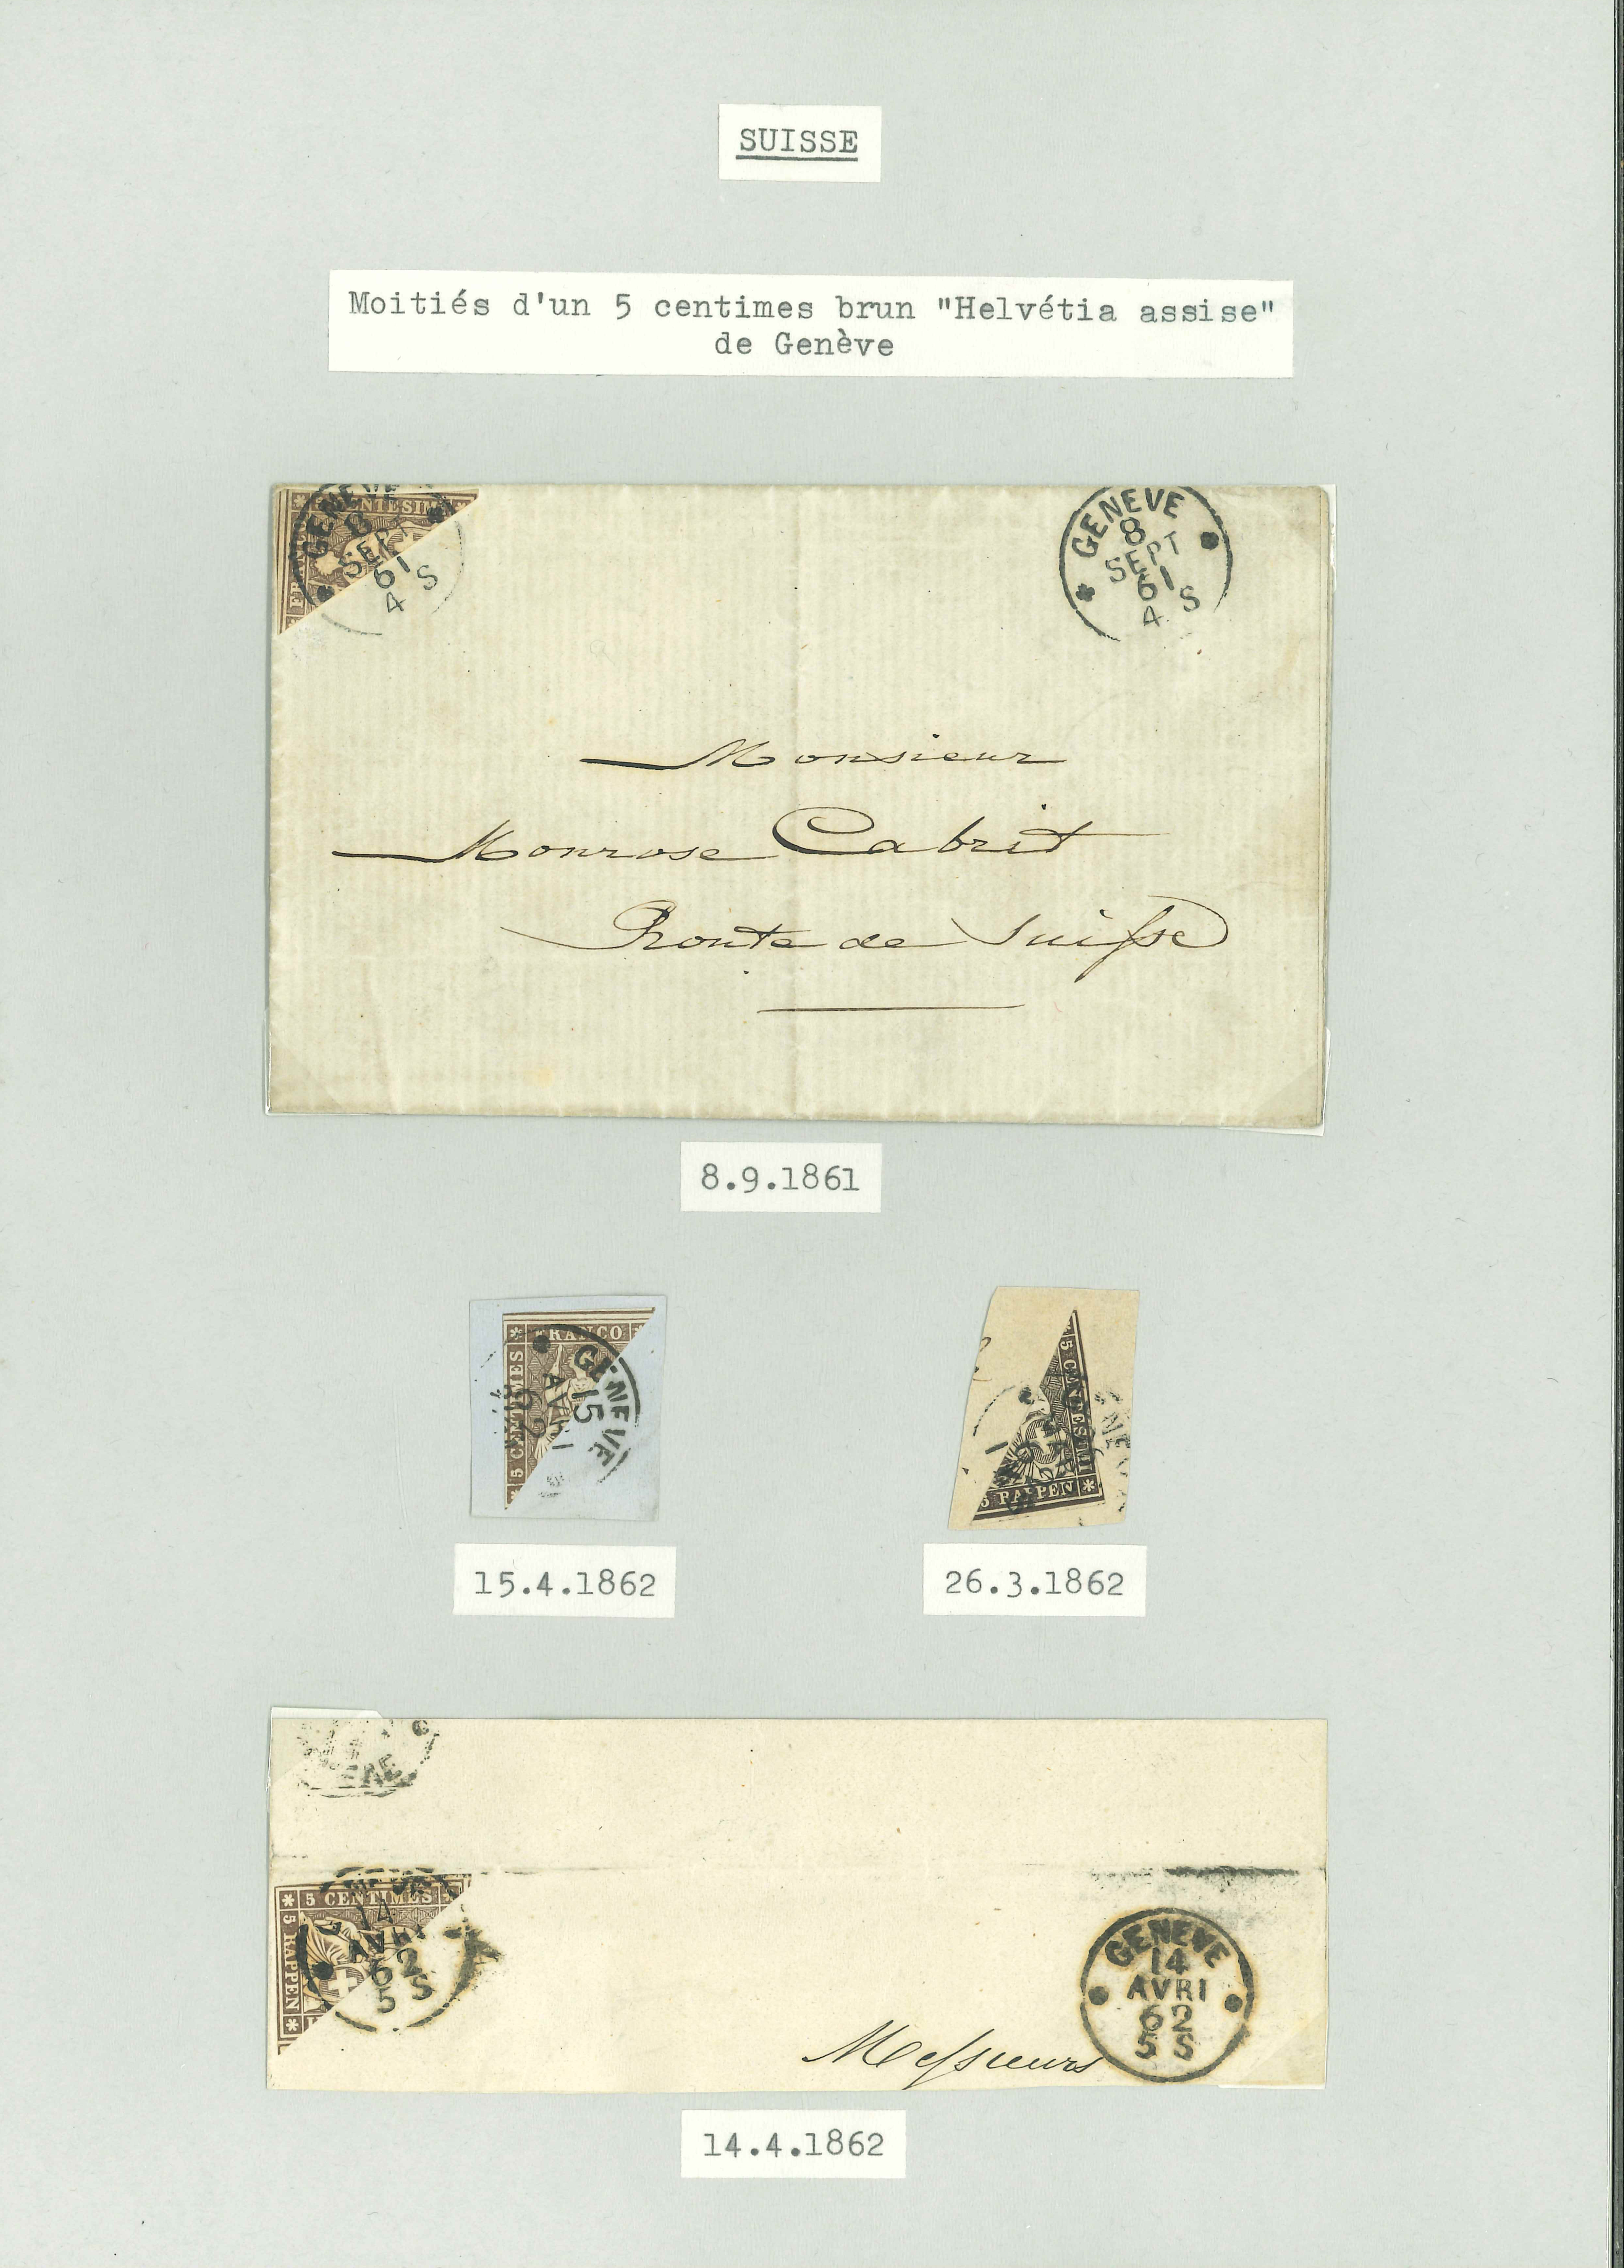 SUISSE
Moitiés d'un 5 centimes brun "Helvétia assise"
de Genève
GENEVE
8
SEPT
61
4 S
GENEVE
8
SEPT
61
4 S
Monsieur
Monrose Cabrit
Route de Suisse
8.9.1861
FRANCO
5 CENTIMES
GENEVE
15
AVRI
62
5 CENTESIMI
5 RAPPEN
15.4.1862
26.3.1862
5 CENTIMES
5 RAPPEN
14
AVRI
62
5 S
GENEVE
14
AVRI
62
5 S
Messieurs
14.4.1862